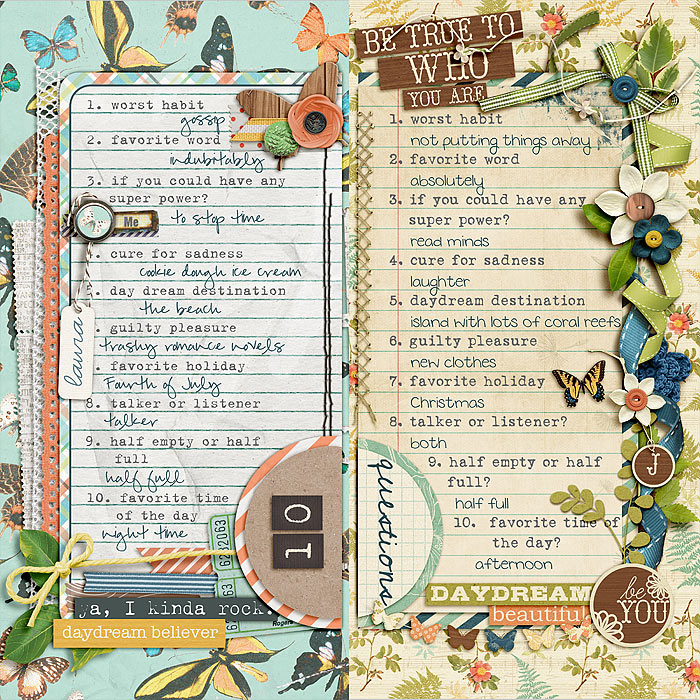 1. worst habit
gossip
2. favorite word
indubitably
3. if you could have any
super power?
to stop time
Me
4. cure for sadness
cookie dough ice cream
5. day dream destination
the beach
laura
guilty pleasure
trashy romance novels
favorite holiday
Fourth of July
8. talker or listener
talker
9. half empty or half
full
half full
10. favorite time
of the day
night time
10
6232063
ya, I kinda rock.
daydream believer
BE TRUE TO
WHO
YOU ARE
1. worst habit
not putting things away
2. favorite word
absolutely
3. if you could have any
super power?
read minds
4. cure for sadness
laughter
5. daydream destination
island with lots of coral reefs
6. guilty pleasure
new clothes
7. favorite holiday
Christmas
8. talker or listener?
both
9. half empty or half
full?
half full
10. favorite time of
the day?
afternoon
J
questions
DAYDREAM
beautiful
be
YOU